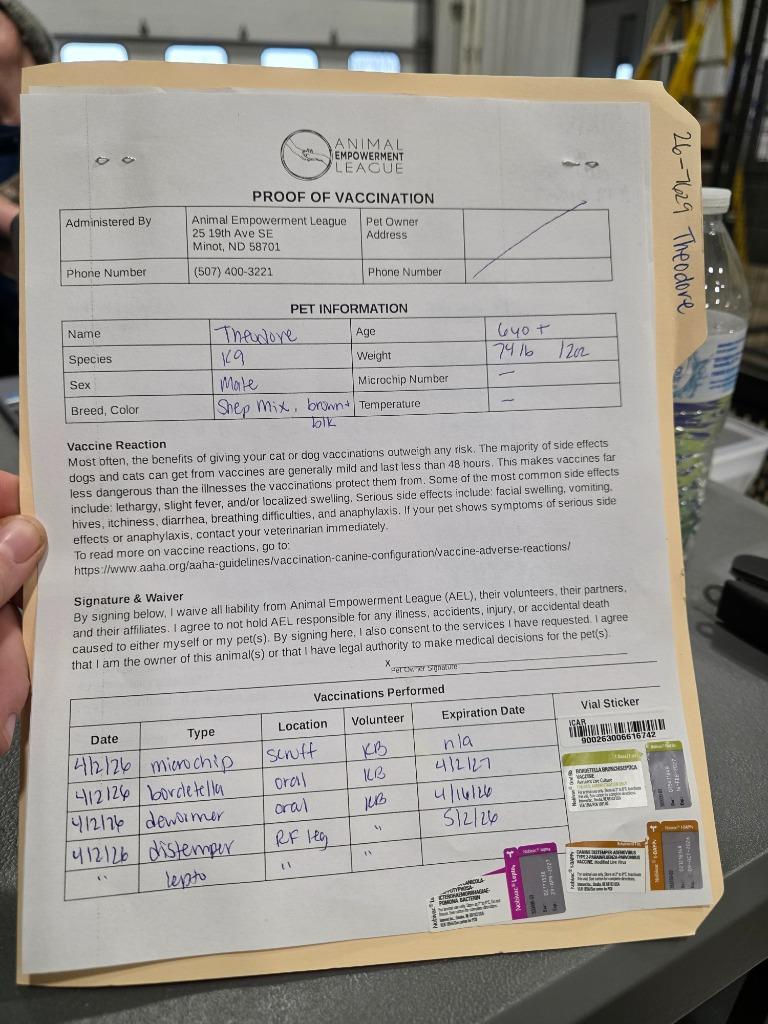 26-7629 Theodore
ANIMAL
EMPOWERMENT
LEAGUE
PROOF OF VACCINATION
Administered By Animal Empowerment League Pet Owner
25 19th Ave SE Address
Minot, ND 58701
Phone Number (507) 400-3221 Phone Number
PET INFORMATION
Name Theodore Age 6yo +
Species K9 Weight 74 lb 12oz
Sex Male Microchip Number —
Breed, Color Shep Mix, brown + Temperature —
blk
Vaccine Reaction
Most often, the benefits of giving your cat or dog vaccinations outweigh any risk. The majority of side effects
dogs and cats can get from vaccines are generally mild and last less than 48 hours. This makes vaccines far
less dangerous than the illnesses the vaccinations protect them from. Some of the most common side effects
include: lethargy, slight fever, and/or localized swelling. Serious side effects include: facial swelling, vomiting,
hives, itchiness, diarrhea, breathing difficulties, and anaphylaxis. If your pet shows symptoms of serious side
effects or anaphylaxis, contact your veterinarian immediately.
To read more on vaccine reactions, go to:
https://www.aaha.org/aaha-guidelines/vaccination-canine-configuration/vaccine-adverse-reactions/
Signature & Waiver
By signing below, I waive all liability from Animal Empowerment League (AEL), their volunteers, their partners,
and their affiliates. I agree to not hold AEL responsible for any illness, accidents, injury, or accidental death
caused to either myself or my pet(s). By signing here, I also consent to the services I have requested. I agree
that I am the owner of this animal(s) or that I have legal authority to make medical decisions for the pet(s).
X
Pet Owner Signature
Vaccinations Performed
Date Type Location Volunteer Expiration Date Vial Sticker
4/2/26 microchip scruff KB n/a
4/2/26 bordetella oral KB 4/2/27
4/2/26 dewormer oral KB 4/16/26
4/2/26 distemper RF leg " 5/2/26
" lepto " "
ICAR
900263006616742
BORDETELLA BRONCHISEPTICA
VACCINE
CANINE DISTEMPER-ADENOVIRUS
TYPE 2-PARAINFLUENZA-PARVOVIRUS
VACCINE, Modified Live Virus
ICTEROHAEMORRHAGIAE-
POMONA BACTERIN